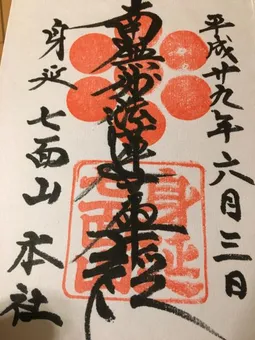 平成廿九年六月三日
南無妙法蓮華経
身延
七面山
本社